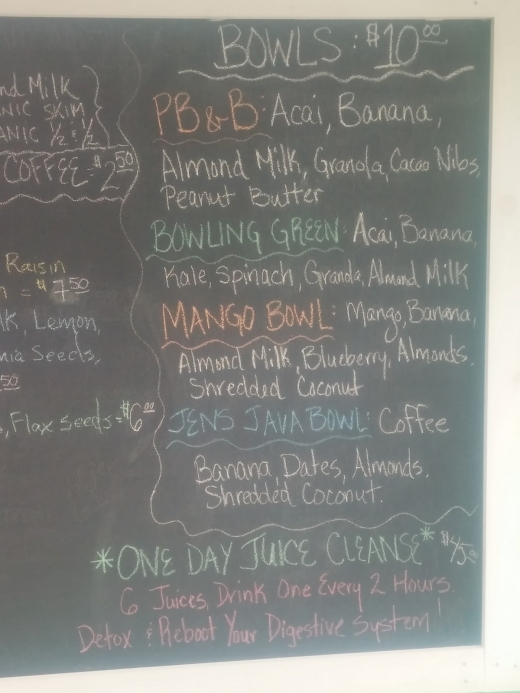 nd Milk
NIC SKIM
ANIC ½ & ½
COFFEE = $2.50
Raisin
= $7.50
LK, Lemon,
ia Seeds,
50
, Flax Seeds = $6.00
BOWLS : $10.00
PB & B: Acai, Banana,
Almond Milk, Granola, Cacao Nibs,
Peanut Butter
BOWLING GREEN: Acai, Banana,
Kale, Spinach, Granola, Almond Milk
MANGO BOWL: Mango, Banana,
Almond Milk, Blueberry, Almonds.
Shredded Coconut
JENS JAVA BOWL: Coffee
Banana, Dates, Almonds.
Shredded Coconut.
*ONE DAY JUICE CLEANSE* $45.00
6 Juices, Drink One Every 2 Hours.
Detox & Reboot Your Digestive System!